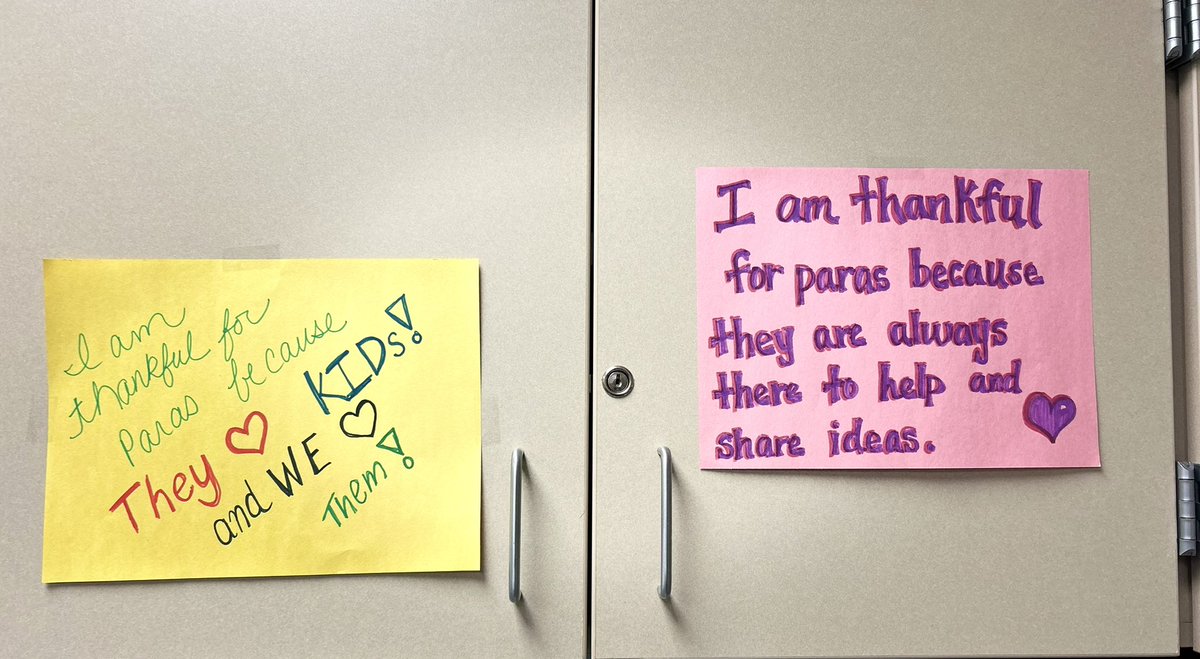 I am
thankful for
Paras because
They ♡ KIDs!
and WE ♡
Them!
I am thankful
for paras because
they are always
there to help and
share ideas.